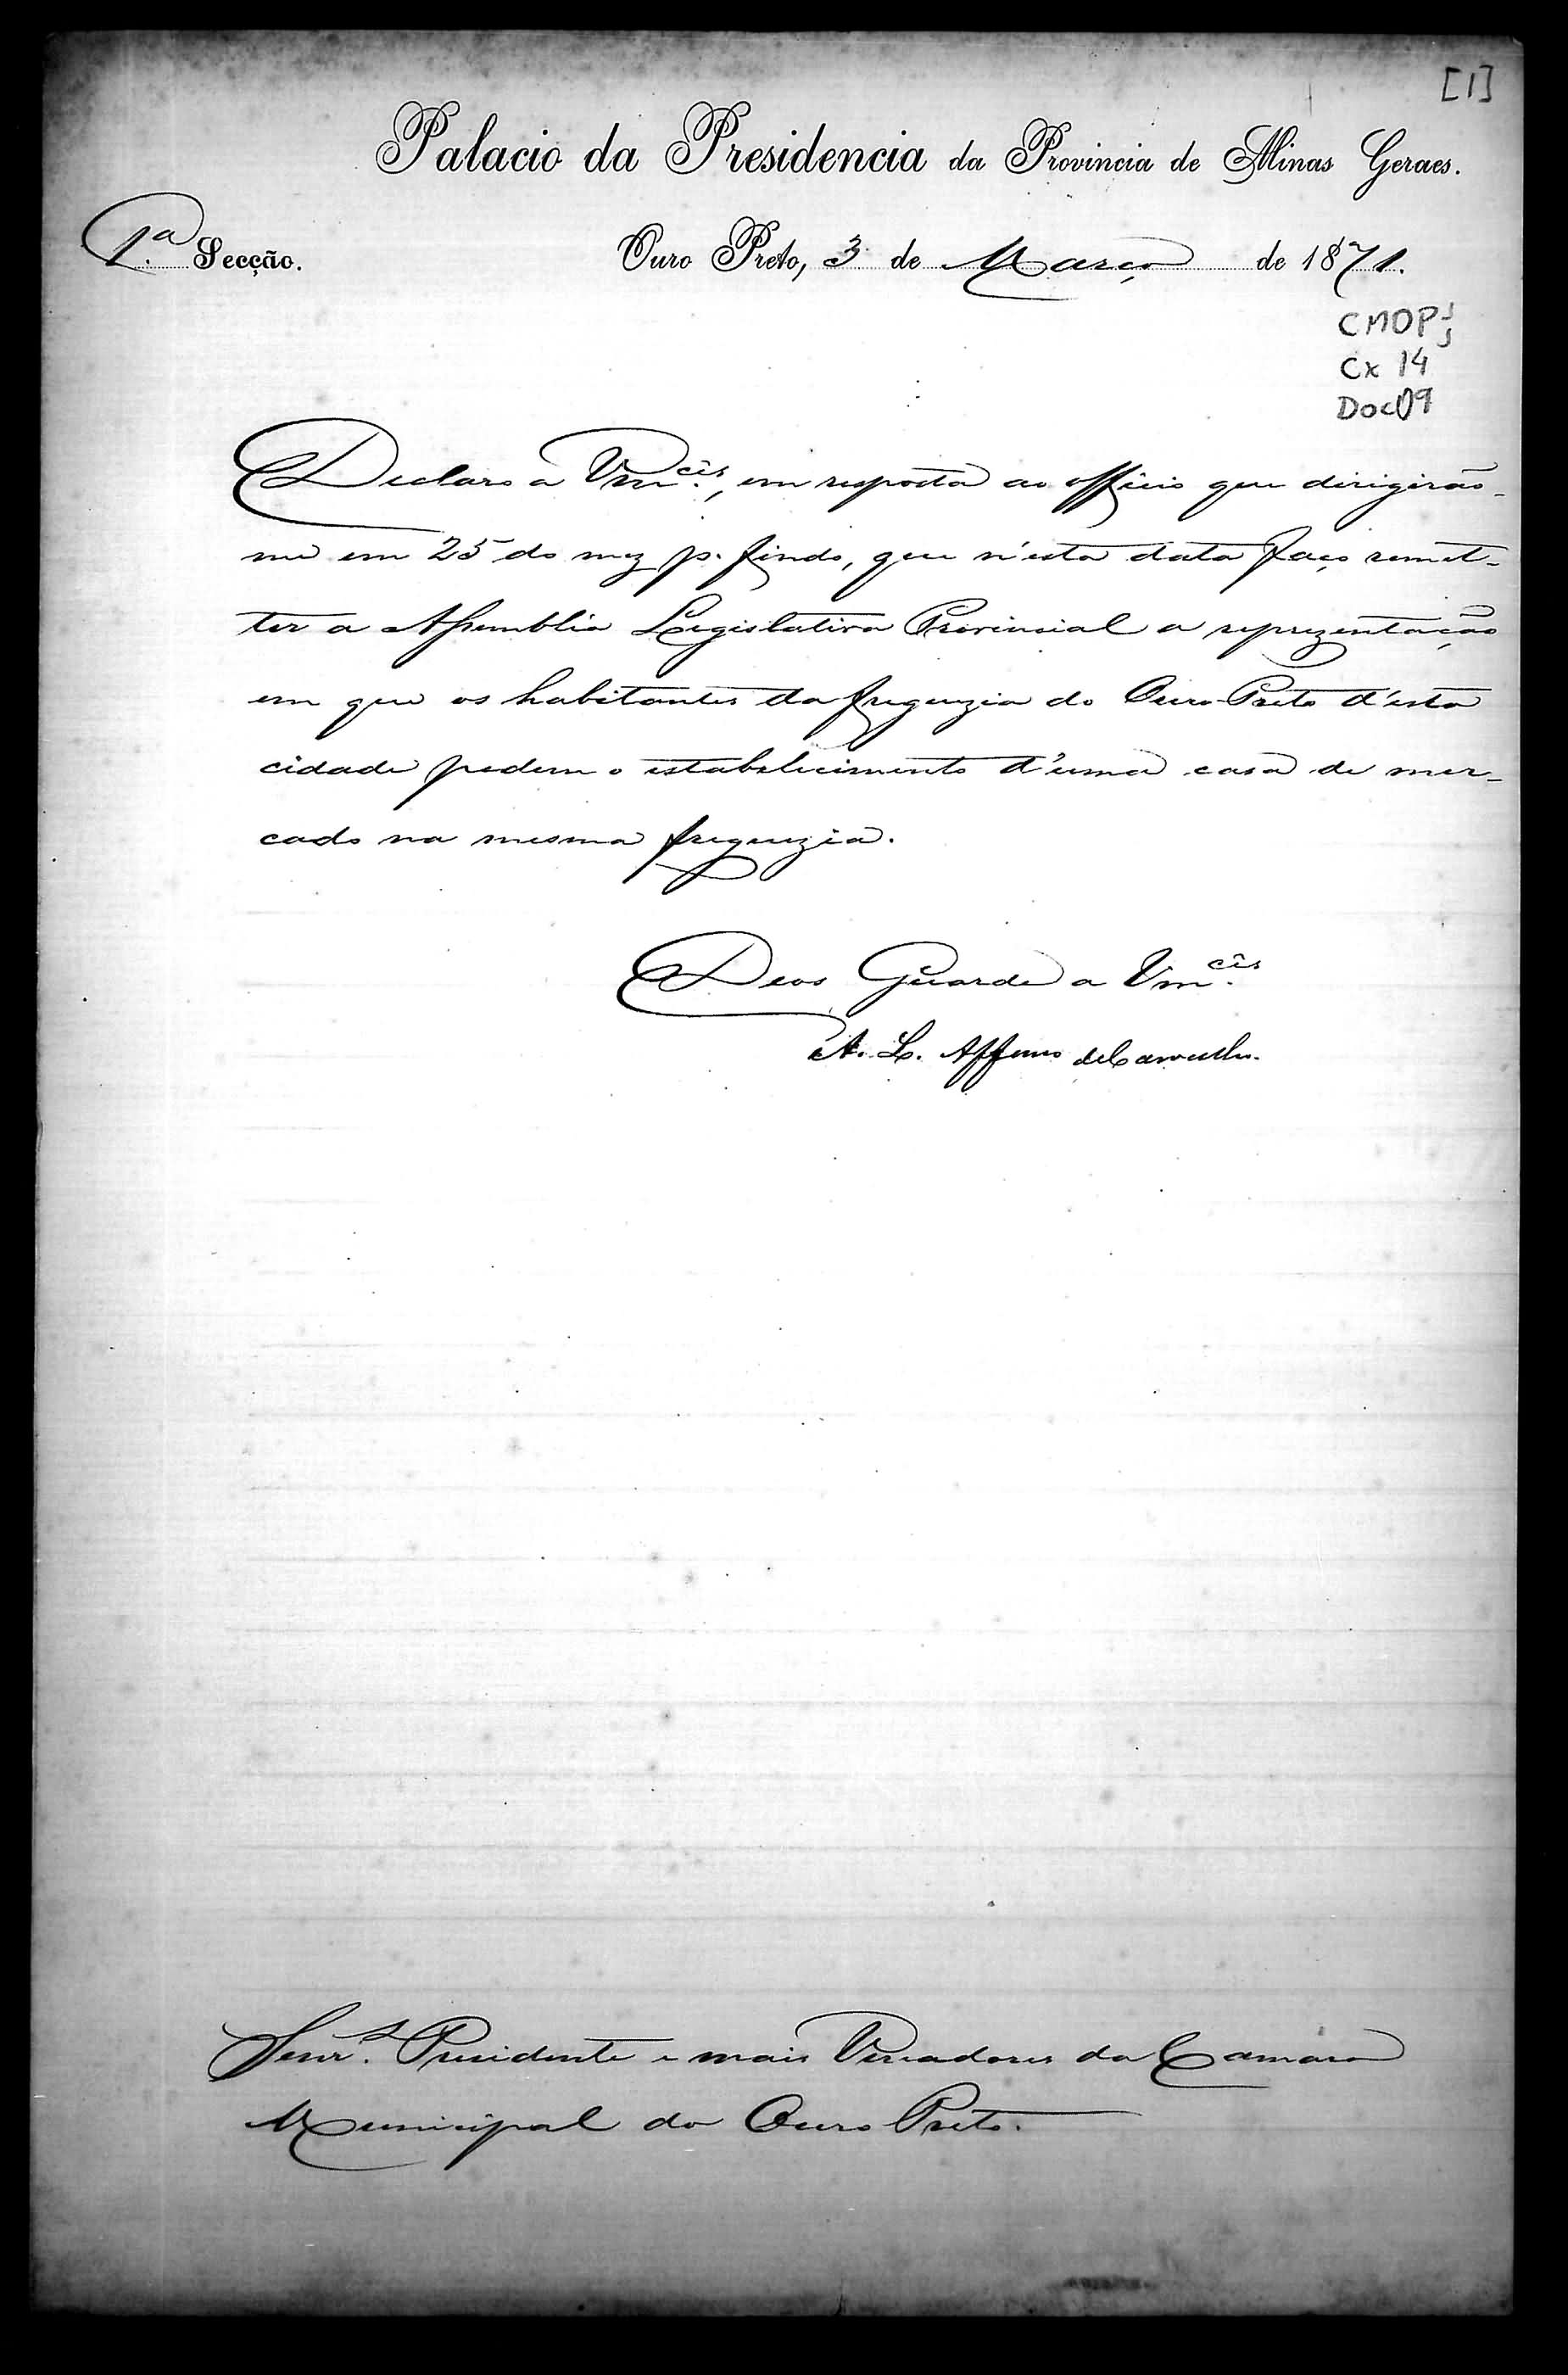 [1]
Palacio da Presidencia da Provincia de Minas Geraes.
1.ª Secção.
Ouro Preto, 3 de Março de 1871.
CMOP
Cx 14
Doc 09
Declaro a Vm.cês, em resposta ao officio que dirigirão-
me em 25 do mez p. findo, que n'esta data faço remet-
ter a Assemblia Legislativa Provincial a reprezentação
em que os habitantes da freguezia do Ouro-Preto d'esta
cidade pedem o estabelecimento d'uma casa de mer-
cado na mesma freguezia.
Deos Guarde a Vm.cês
A. L. Affonso de Carvalho.
Senr.s Presidente e mais Vereadores da Camara
Municipal do Ouro Preto.